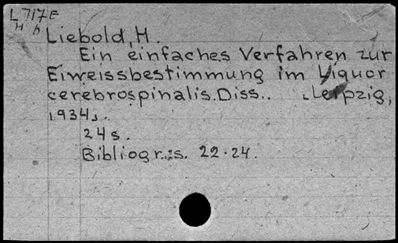 L717E
H b
Liebold, H.
Ein einfaches Verfahren zur
Eiweissbestimmung im Liquor
cerebrospinalis. Diss.. Leipzig,
1934.
24s.
Bibliogr.:s. 22-24.